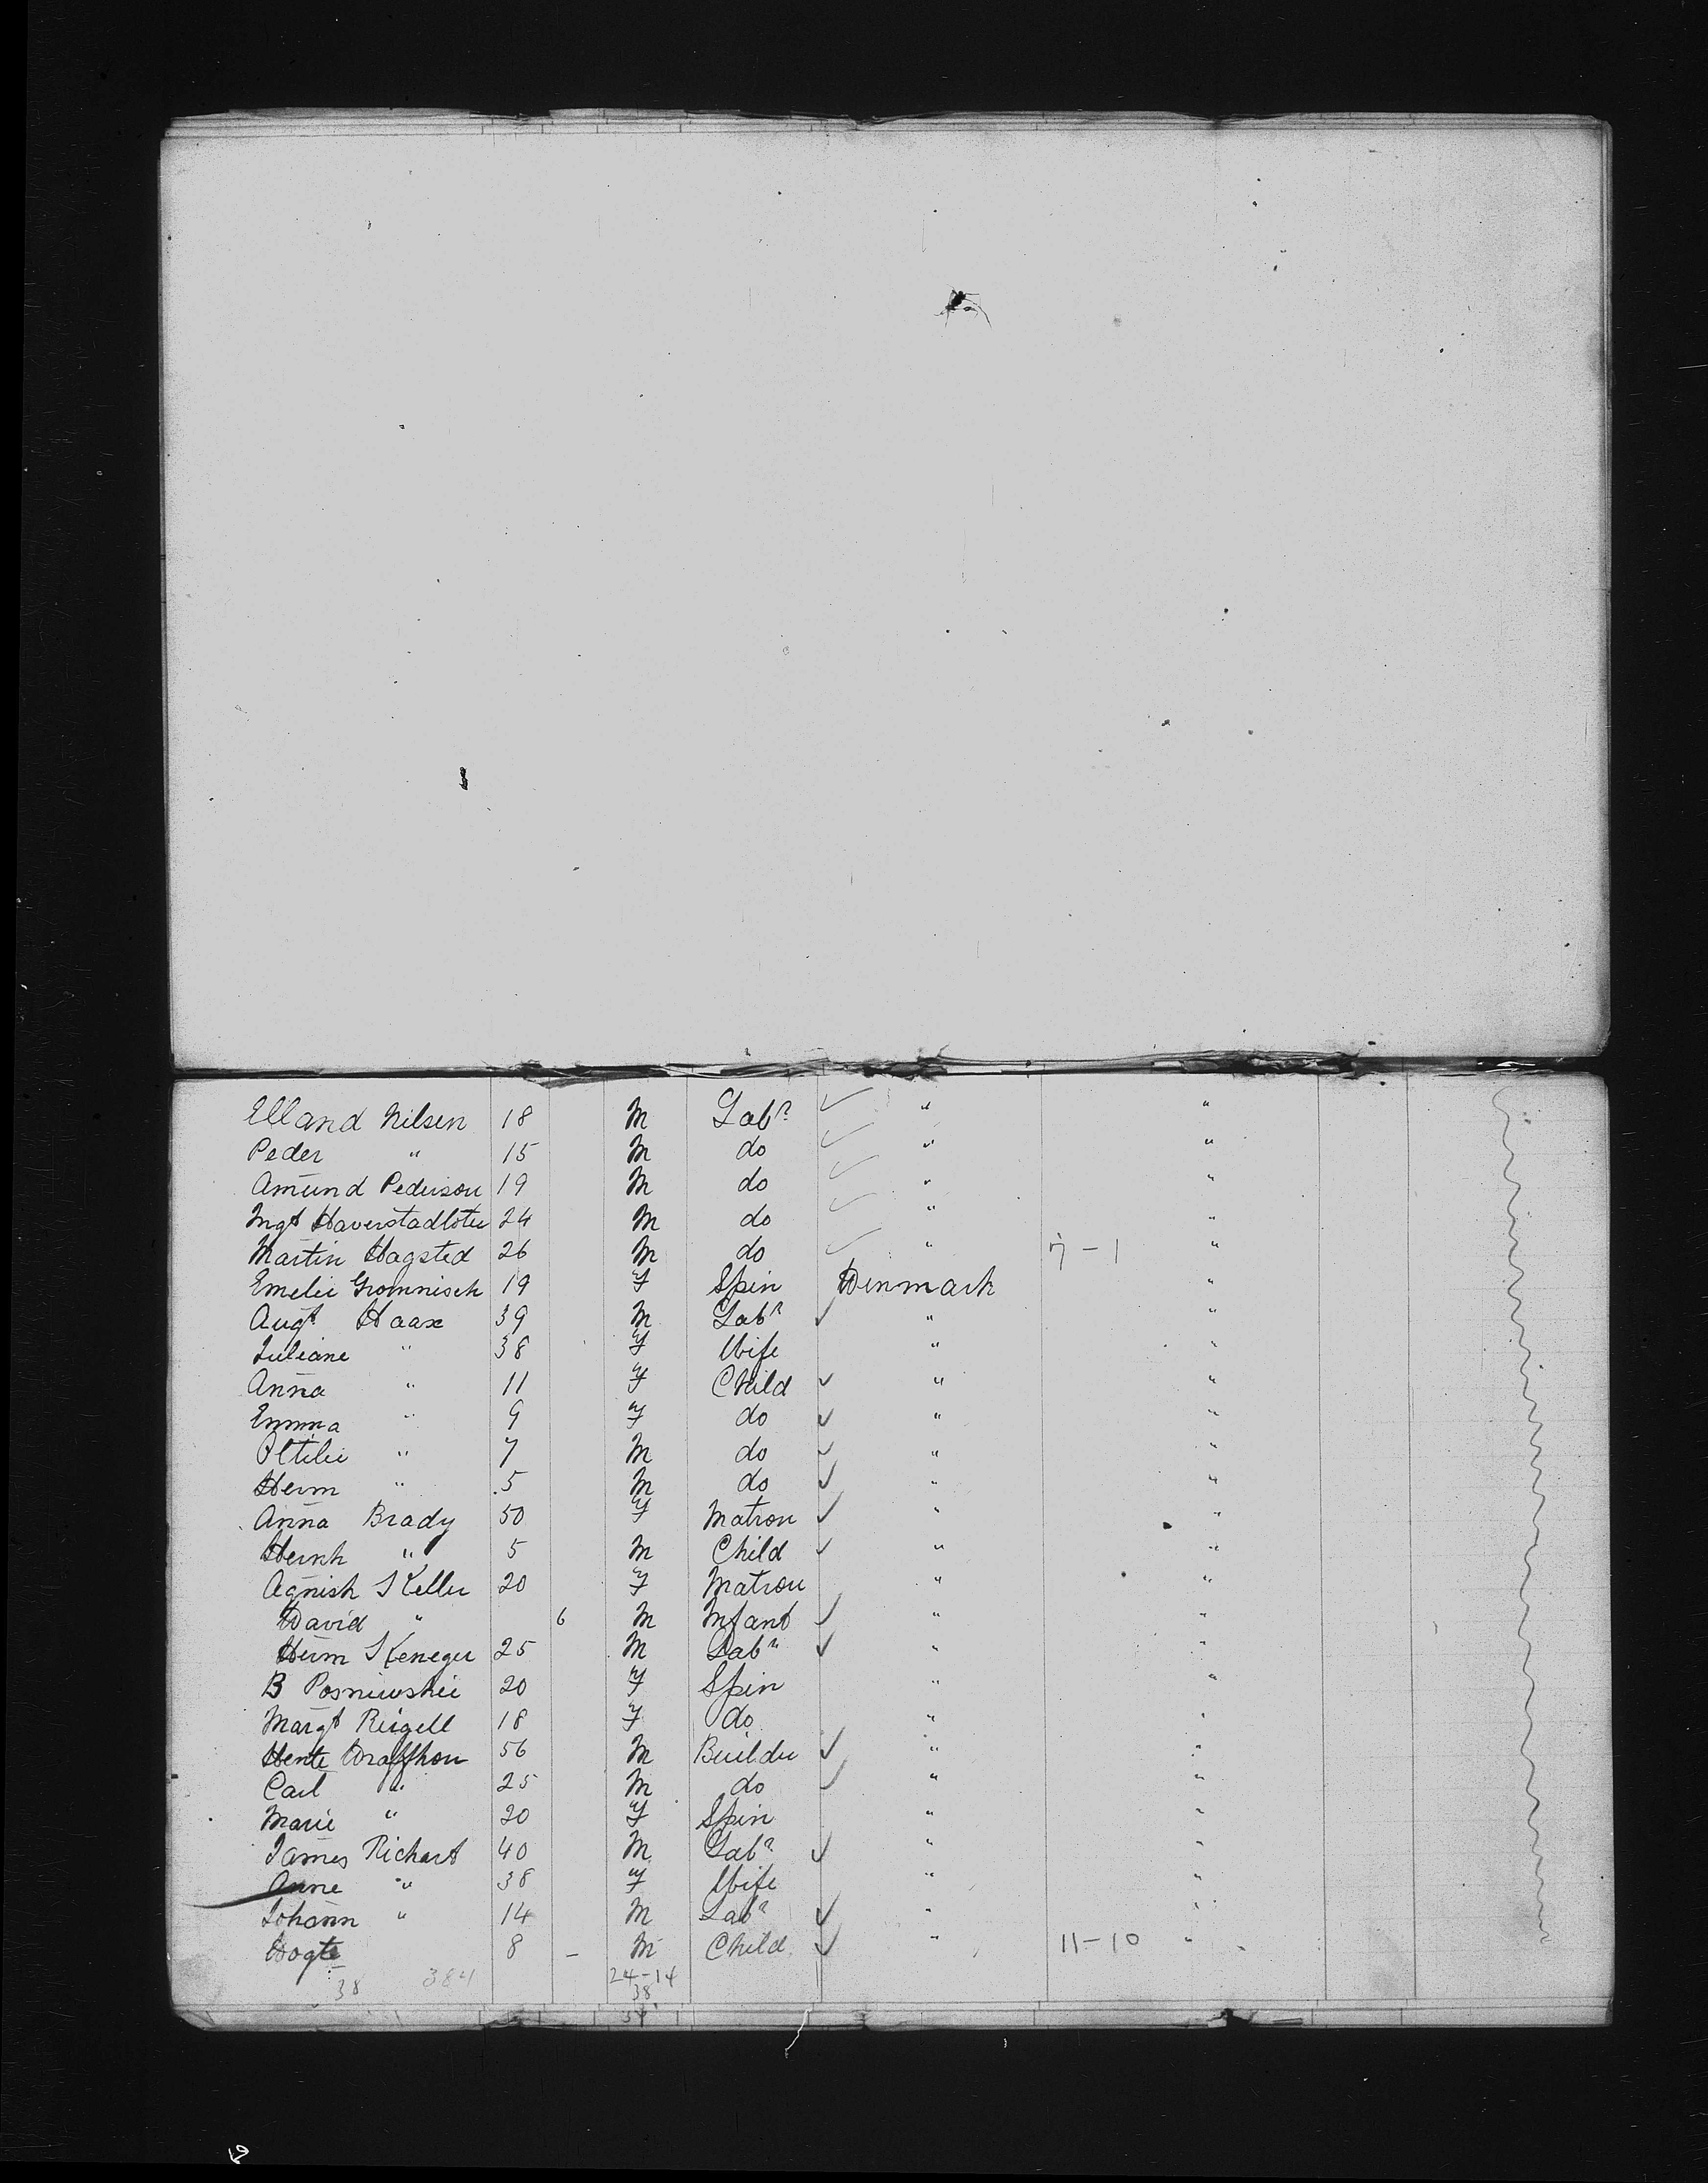 Elland Nilsen 18 M Labr ✓ " "
Peder " 15 M do ✓ " "
Amund Pederson 19 M do ✓ " "
Ingt Haverstadloter 24 M do ✓ " "
Martin Hagsted 26 M do ✓ " 7-1 "
Emelie Gromnisch 19 F Spin Denmark "
Augt Haase 39 M Labr ✓ " "
Juliane " 38 F Wife " "
Anna " 11 F Child ✓ " "
Emma " 9 F do ✓ " "
Ottilie " 7 M do ✓ " "
Herm " 5 M do ✓ " "
Anna Brady 50 F Matron ✓ " "
Heinh " 5 M Child ✓ " "
Agnish Keller 20 F Matron " "
David " 6 M Infant ✓ " "
Herm Keneger 25 M Labr ✓ " "
B Posniewskii 20 F Spin " "
Margt Riegell 18 F do " "
Hente 56 M Builder ✓ " "
Carl " 25 M do ✓ " "
Marie " 20 F Spin " "
James Richart 40 M Labr ✓ " "
Anne " 38 F Wife " "
Johann " 14 M Labr ✓ " "
8 - M Child ✓ " 11-10 "
38 384 24-14
38